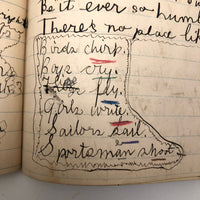 Be it ever so humb
There's no place lik
Birds chirp.
Boys cry.
fly.
Girls write.
Sailors sail.
Sportsman shoot.